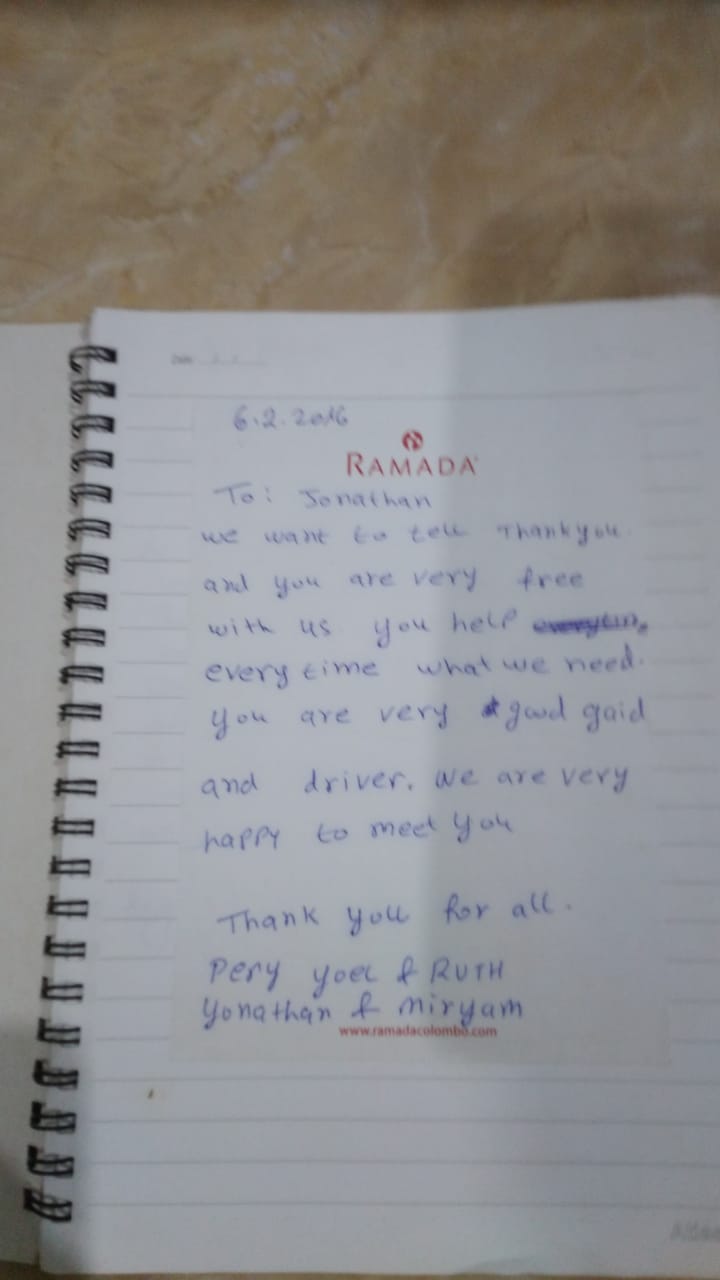 Date
6.2.2016
RAMADA
To: Jonathan
we want to tell Thankyou.
and you are very free
with us you help
every time what we need.
you are very good gaid
and driver. we are very
happy to meet you
Thank you for all.
Pery yoel & RUTH
Yonathan & Miryam
www.ramadacolombo.com